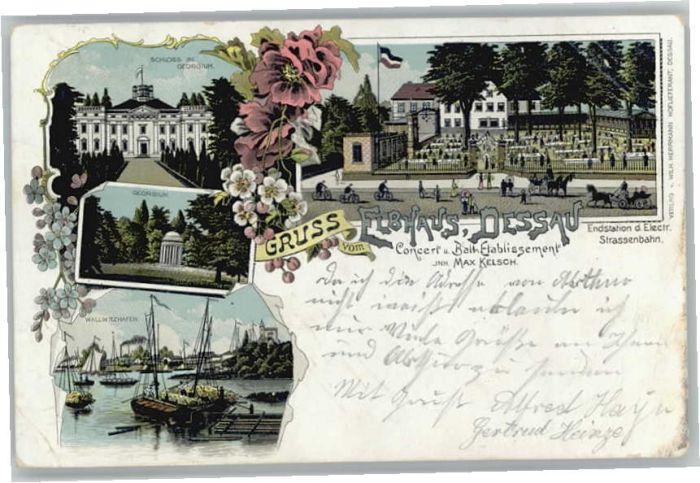 SCHLOSS IM
GEORGIUM.
GEORGIUM
WALLWITZHAFEN.
GRUSS vom
ELBHAUS, DESSAU
Concert u. Ball-Etablissement
INH. MAX KELSCH.
Endstation d. Electr.
Strassenbahn.
VERLAG v. WILH. HERRMANN HOFLIEFERANT, DESSAU.
Da ich die Adresse von Arthur
nicht weiß erlaube ich
mir Viele Grüße an Ihnen
und Arthur zu senden
Mit Gruß Alfred Hayn
Gertrud Heinze